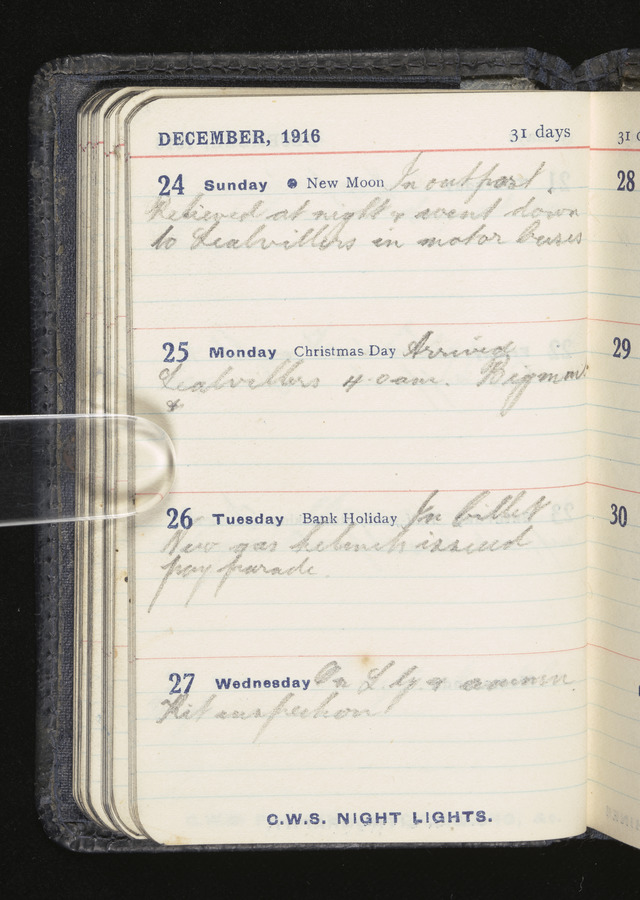 DECEMBER, 1916 31 days
24 Sunday New Moon In outpost.
Relieved at night & went down
to Lealvillers in motor buses
25 Monday Christmas Day Arrived
Lealvillers 4.0 am.
&
26 Tuesday Bank Holiday In billet
New gas helmets issued
pay parade.
27 Wednesday On
Kit inspection
C.W.S. NIGHT LIGHTS.
31
28
29
30